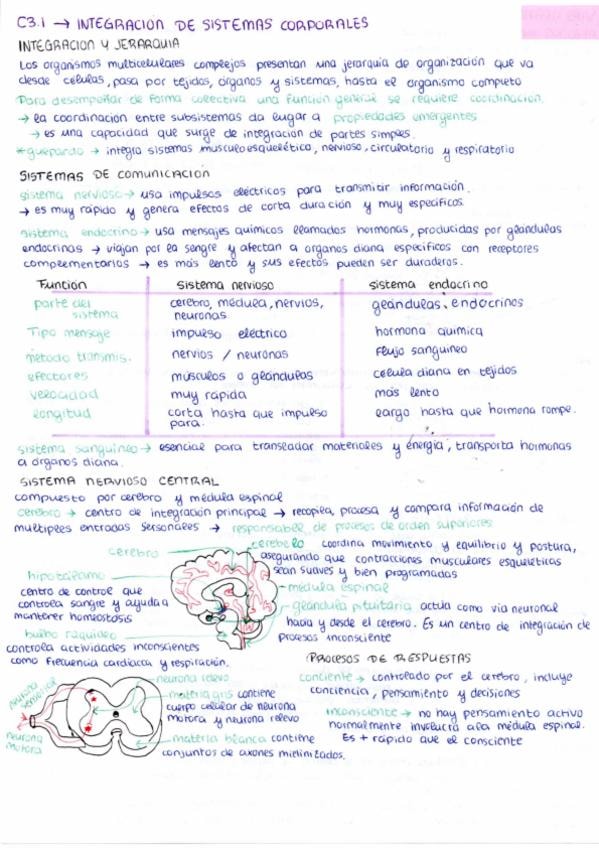 C3.1 → INTEGRACIÓN DE SISTEMAS CORPORALES
INTEGRACION Y JERARQUIA
Los organismos multicelulares complejos presentan una jerarquía de organización que va
desde células, pasa por tejidos, órganos y sistemas, hasta el organismo completo
Para desempeñar de forma colectiva una función general se requiere coordinación.
→ la coordinación entre subsistemas da lugar a propiedades emergentes
→ es una capacidad que surge de integracion de partes simples.
*guepardo → integra sistemas musculoesquelético, nervioso, circulatorio y respiratorio
SISTEMAS DE COMUNICACIÓN
sistema nervioso → usa impulsos eléctricos para transmitir información.
→ es muy rápido y genera efectos de corta duración y muy específicos.
sistema endocrino → usa mensajes químicos llamados hormonas, producidas por glándulas
endocrinas → viajan por la sangre y afectan a organos diana específicos con receptores
complementarios → es más lento y sus efectos pueden ser duraderos.
Función sistema nervioso sistema endocrino
parte del sistema cerebro, médula, nervios, neuronas glándulas endocrinos
Tipo mensaje impulso eléctrico hormona química
método transmis. nervios / neuronas flujo sanguíneo
efectores músculos o glándulas célula diana en tejidos
velocidad muy rápida más lento
longitud corta hasta que impulso para. largo hasta que hormona rompe.
sistema sanguíneo → esencial para trasladar materiales y energía, transporta hormonas
a órganos diana.
SISTEMA NERVIOSO CENTRAL
compuesto por cerebro y médula espinal
cerebro → centro de integración principal → recopila, procesa y compara información de
multiples entradas sensoriales → responsable de procesos de orden superiores
cerebro
cerebelo coordina movimiento y equilibrio y postura,
asegurando que contracciones musculares esqueléticas
sean suaves y bien programadas
hipotálamo
centro de control que
controla sangre y ayuda a
mantener homeostosis
médula espinal
glándula pituitaria actúa como vía neuronal
hacia y desde el cerebro. Es un centro de integración de
procesos inconsciente
bulbo raquídeo
controla actividades inconscientes
como frecuencia cardiaca y respiración.
PROCESOS DE RESPUESTAS
conciente → controlado por el cerebro, incluye
conciencia, pensamiento y decisiones
inconsciente → no hay pensamiento activo
normalmente involucra a la médula espinal.
Es + rápido que el consciente
neurona sensorial
neurona relevo
materia gris contiene
cuerpo celular de neurona
motora y neurona relevo
neurona motora
materia blanca contiene
conjuntos de axones mielinizados.